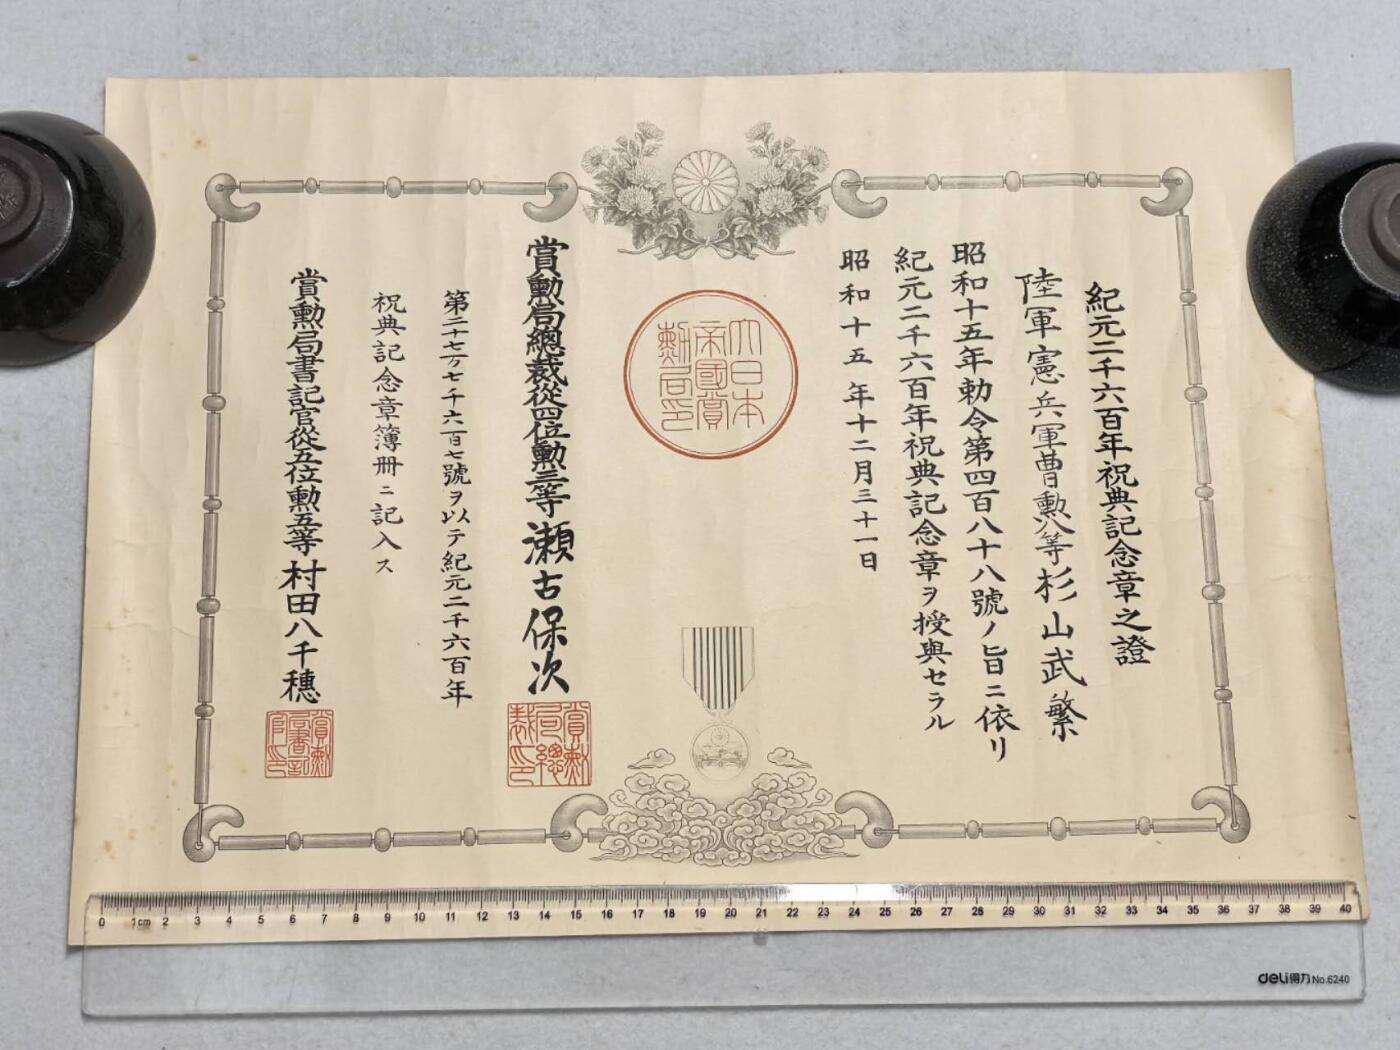 紀元二千六百年祝典記念章之證
陸軍憲兵軍曹勲八等杉山武繁
昭和十五年勅令第四百八十八號ノ旨ニ依リ
紀元二千六百年祝典記念章ヲ授與セラル
昭和十五年十二月三十一日
大日本
帝國賞
勲局印
賞勲局總裁從四位勲三等瀬古保次
賞勲
局總
裁印
第二十七万七千六百七號ヲ以テ紀元二千六百年
祝典記念章簿冊ニ記入ス
賞勲局書記官從五位勲五等村田八千穗
賞勲
局書記
官印
0 1cm 2 3 4 5 6 7 8 9 10 11 12 13 14 15 16 17 18 19 20 21 22 23 24 25 26 27 28 29 30 31 32 33 34 35 36 37 38 39 40
deli得力 No.6240